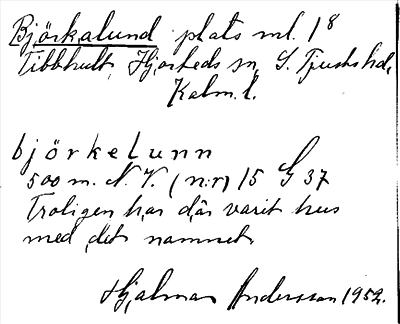 Björkalund plats ml. 1⁸
Tibbhult, Hjorteds sn, S. Tjusts hd,
Kalm. l.
björkelunn
500 m. N. V. (n:r) 15 G 37
Troligen har där varit hus
med det namnet
Hjalmar Andersson 1952.